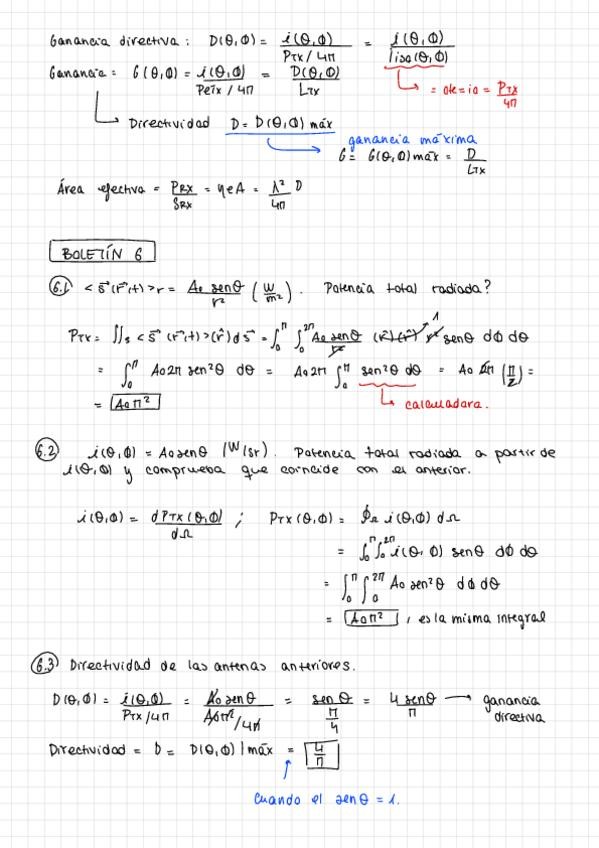 Ganancia directiva: D(θ,Φ) = i(θ,Φ) / (PTX/4π) = i(θ,Φ) / iiso(θ,Φ)
Ganancia: G(θ,Φ) = i(θ,Φ) / (PeTx/4π) = D(θ,Φ) / LTX
= cte = io = PTX/4π
Directividad D = D(θ,Φ) máx
ganancia máxima
G = G(θ,Φ) máx = D / LTX
Área efectiva = PRX / SRX = ηeA = λ²/4π D
BOLETÍN 6
6.1 <s⃗(r⃗,t)>r = Ao senθ / r² (W/m²). Potencia total radiada?
PTX = ∬s <s⃗(r⃗,t)>(r̂)ds⃗ = ∫₀^π ∫₀^2π Ao senθ / r² (r̂)(r̂) r² senθ dΦ dθ
1
= ∫₀^π Ao2π sen²θ dθ = Ao2π ∫₀^π sen²θ dθ = Ao 2π (π/2) =
= Aoπ²
calculadora.
6.2 i(θ,Φ) = Ao senθ (W/sr). Potencia total radiada a partir de
i(θ,Φ) y comprueba que coincide con el anterior.
i(θ,Φ) = dPTX(θ,Φ) / dΩ ; PTX(θ,Φ) = ∮Ω i(θ,Φ) dΩ
= ∫₀^π ∫₀^2π i(θ,Φ) senθ dΦ dθ
= ∫₀^π ∫₀^2π Ao sen²θ dΦ dθ
= Aoπ² , es la misma integral
6.3 Directividad de las antenas anteriores.
D(θ,Φ) = i(θ,Φ) / (PTX/4π) = Ao senθ / (Aoπ²/4π) = sen θ / (π/4) = 4 senθ / π → ganancia
directiva
Directividad = D = D(θ,Φ)|máx = 4/π
Cuando el senθ = 1.